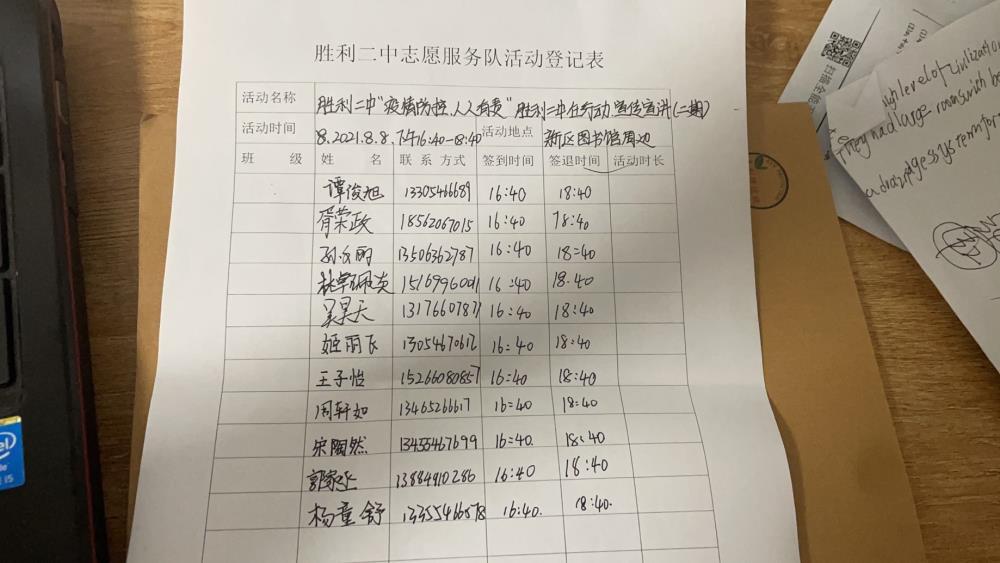 胜利二中志愿服务队活动登记表
活动名称 胜利二中"疫情防控,人人有责"胜利二中在行动,宣传宣讲(二期)
活动时间 8.2021.8.8.下午16:40-18:40 活动地点 新区图书馆周边
班 级 姓 名 联系方式 签到时间 签退时间 活动时长
谭俊旭 13305466689 16:40 18:40
胥荣政 18562067015 16:40 18:40
13506362787 16:40 18:40
16:40 18:40
吴昊天 16:40 18:40
姬丽飞 13054670612 16:40 18:40
王子怡 15266080857 16:40 18:40
周轩如 13465266617 16:40 18:40
宋陶然 13455467699 16:40. 18:40
13884910286 16:40 18:40
杨童舒 13355466578 16:40. 18:40.
high level of civilization
They had large rooms with
intel
i5